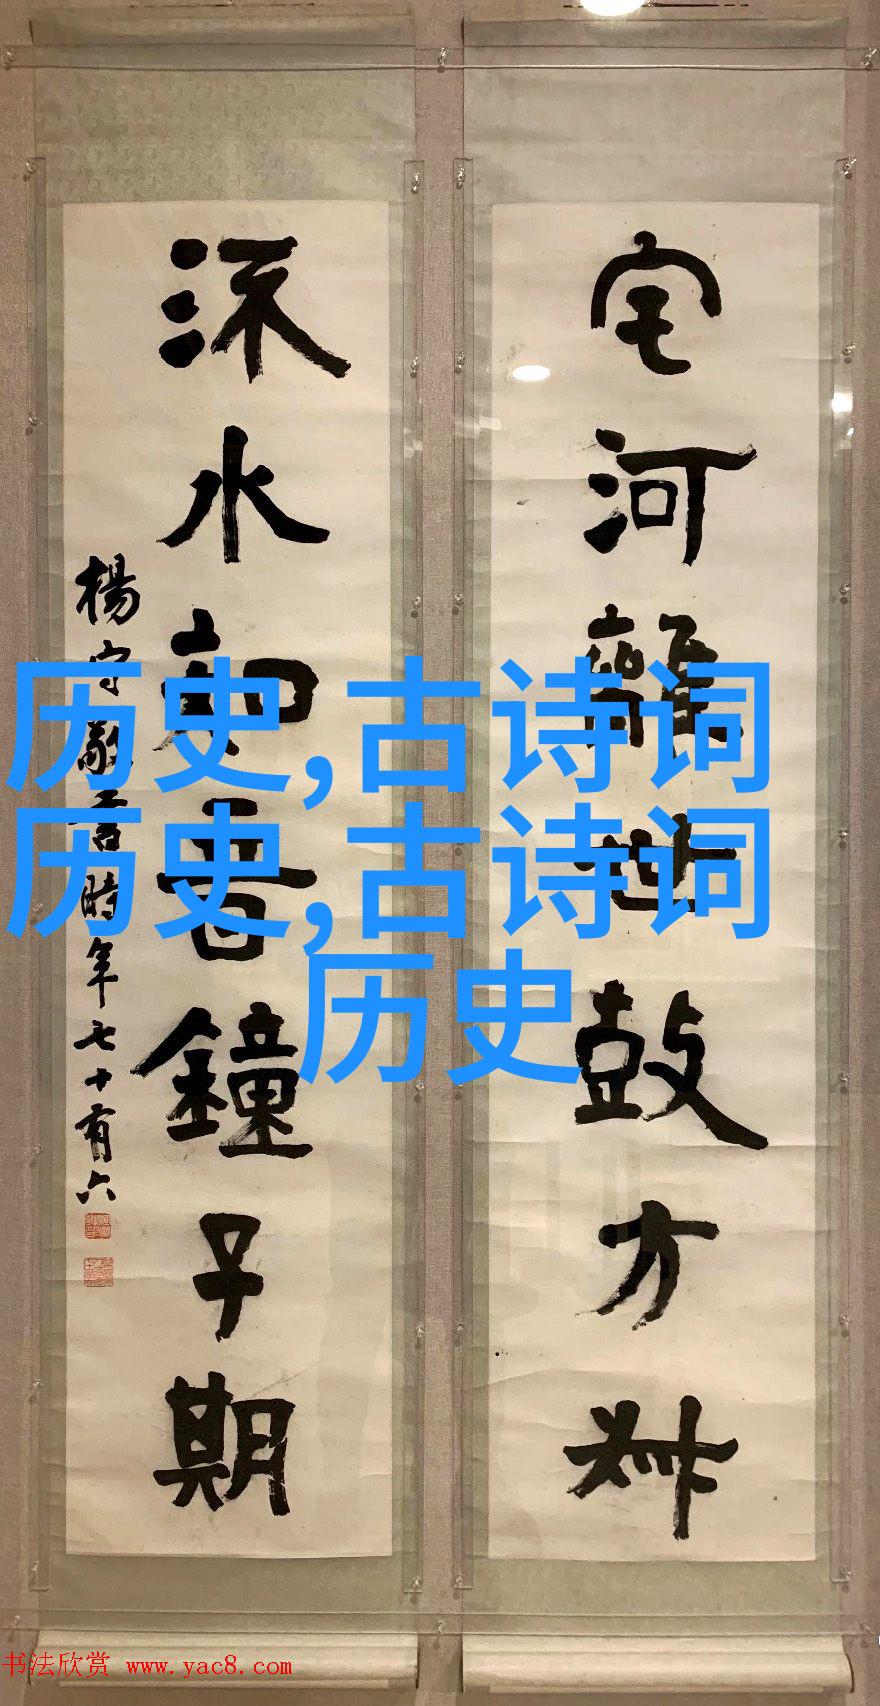 宅河世鼓方叔
流水知音鐘子期
楊守敬書時年七十有六
历史,古诗词
历史,古诗词
历史
书法欣赏 www.yac8.com